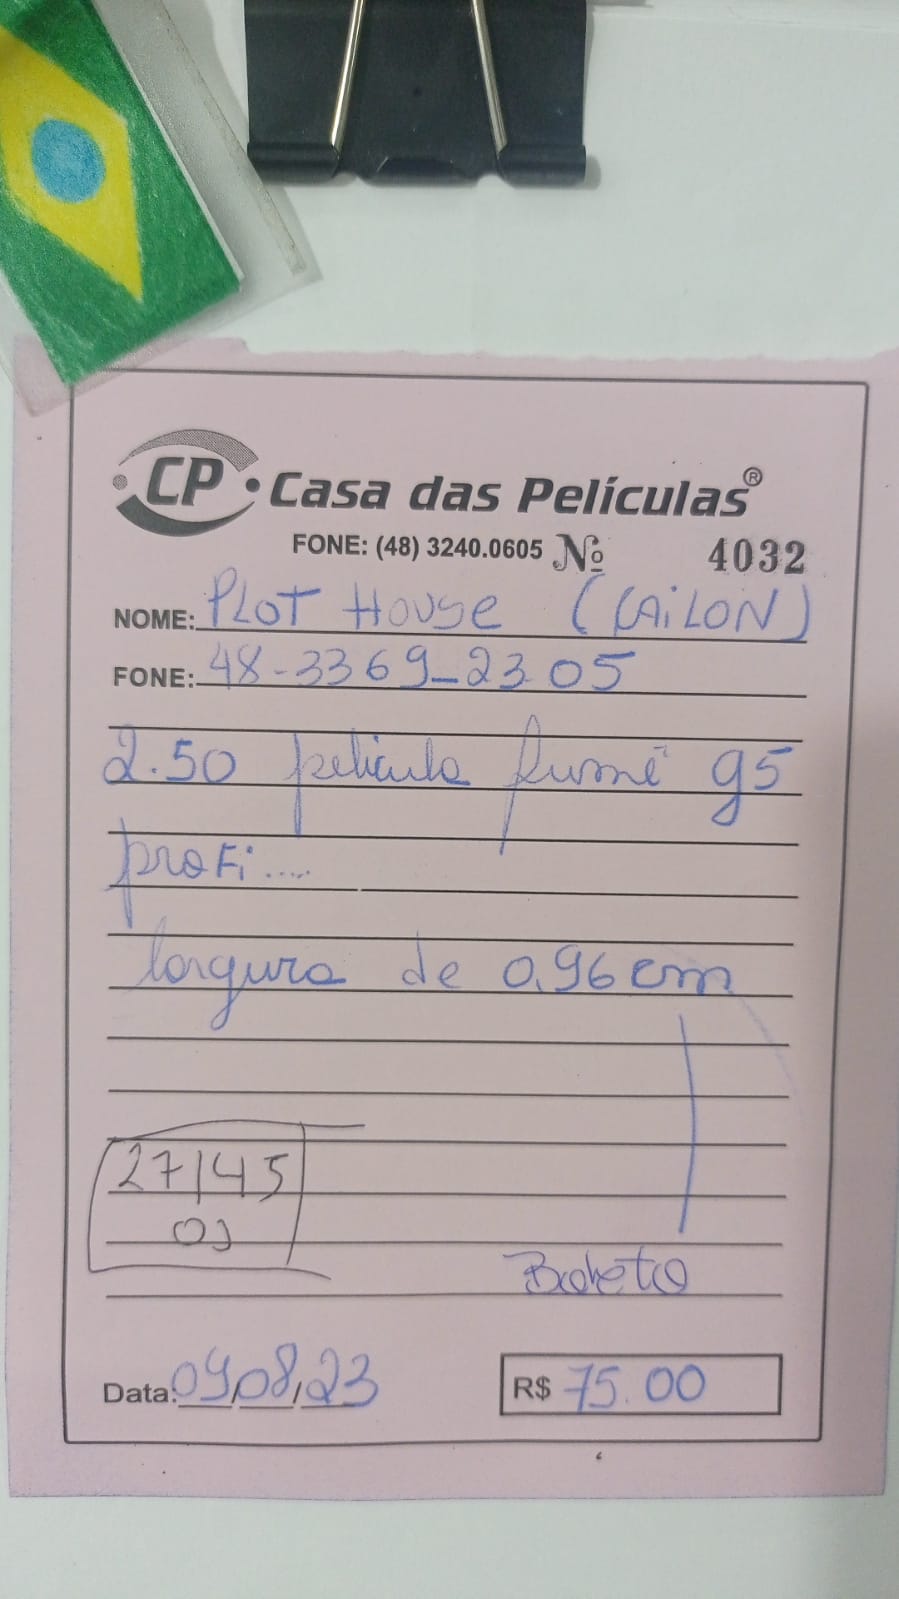 CP Casa das Películas®
FONE: (48) 3240.0605 Nº 4032
NOME: PLOT HOUSE (CAiLON)
FONE: 48-3369-2305
2.50 pelicula fumê g5
profi....
largura de 0,96cm
27/45
Boleto
Data: 09/08/23
R$ 75.00